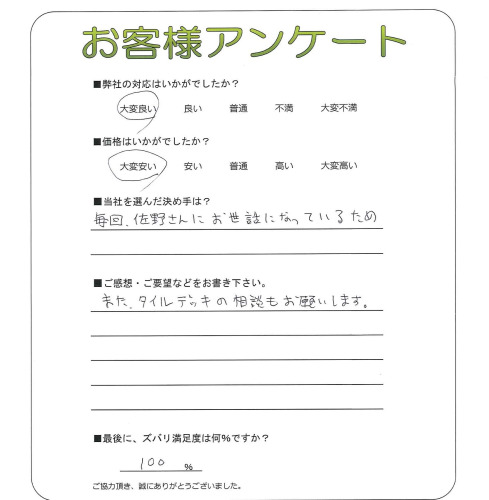 お客様アンケート
■弊社の対応はいかがでしたか？
大変良い 良い 普通 不満 大変不満
■価格はいかがでしたか？
大変安い 安い 普通 高い 大変高い
■当社を選んだ決め手は？
毎回、佐野さんにお世話になっているため
■ご感想・ご要望などをお書き下さい。
また、タイルデッキの相談もお願いします。
■最後に、ズバリ満足度は何%ですか？
100 %
ご協力頂き、誠にありがとうございました。